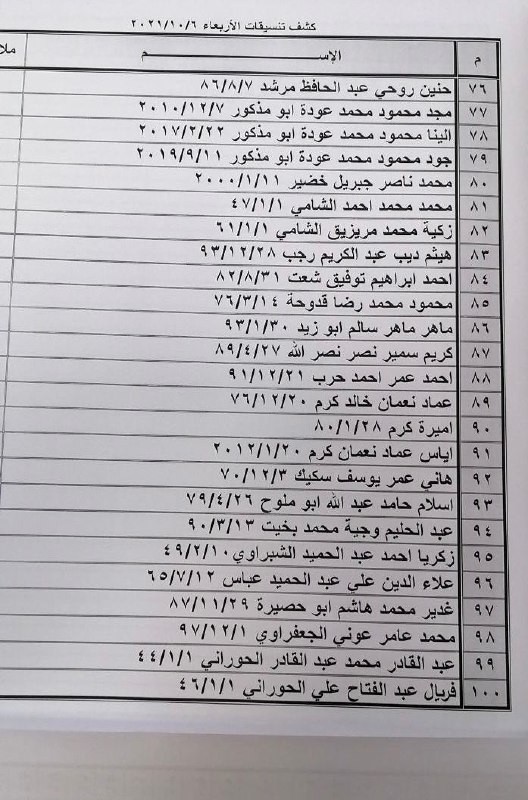 كشف تنسيقات الأربعاء ٢٠٢١/١٠/٦
م الإســـــــم ملا
٧٦ حنين روحي عبد الحافظ مرشد ٨٦/٨/٧
٧٧ مجد محمود محمد عودة ابو مذكور ٢٠١٠/١٢/٧
٧٨ الينا محمود محمد عودة ابو مذكور ٢٠١٧/٢/٢٢
٧٩ جود محمود محمد عودة ابو مذكور ٢٠١٩/٩/١١
٨٠ محمد ناصر جبريل خضير ٢٠٠٠/١/١١
٨١ محمد محمد احمد الشامي ٤٧/١/١
٨٢ زكية محمد مريزيق الشامي ٦١/١/١
٨٣ هيثم ديب عبد الكريم رجب ٩٣/١٢/٢٨
٨٤ احمد ابراهيم توفيق شعت ٨٢/٨/٣١
٨٥ محمود محمد رضا قدوحة ٧٦/٣/١٤
٨٦ ماهر ماهر سالم ابو زيد ٩٣/١/٣٠
٨٧ كريم سمير نصر نصر الله ٨٩/٤/٢٧
٨٨ احمد عمر احمد حرب ٩١/١٢/٢١
٨٩ عماد نعمان خالد كرم ٧٦/١٢/٢٠
٩٠ اميرة كرم ٨٠/١/٢٨
٩١ اياس عماد نعمان كرم ٢٠١٢/١/٢٠
٩٢ هاني عمر يوسف سكيك ٧٠/١٢/٣
٩٣ اسلام حامد عبد الله ابو ملوح ٧٩/٤/٢٦
٩٤ عبد الحليم وجية محمد بخيت ٩٠/٣/١٣
٩٥ زكريا احمد عبد الحميد الشبراوي ٤٩/٢/١٠
٩٦ علاء الدين علي عبد الحميد عباس ٦٥/٧/١٢
٩٧ غدير محمد هاشم ابو حصيرة ٨٧/١١/٢٩
٩٨ محمد عامر عوني الجعفراوي ٩٧/١٢/١
٩٩ عبد القادر محمد عبد القادر الحوراني ٤٤/١/١
١٠٠ فريال عبد الفتاح علي الحوراني ٤٦/١/١